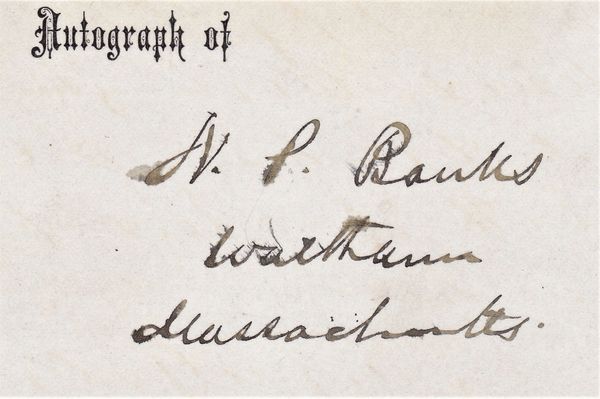 Autograph of
N. P. Banks
Waltham
Massachusetts.